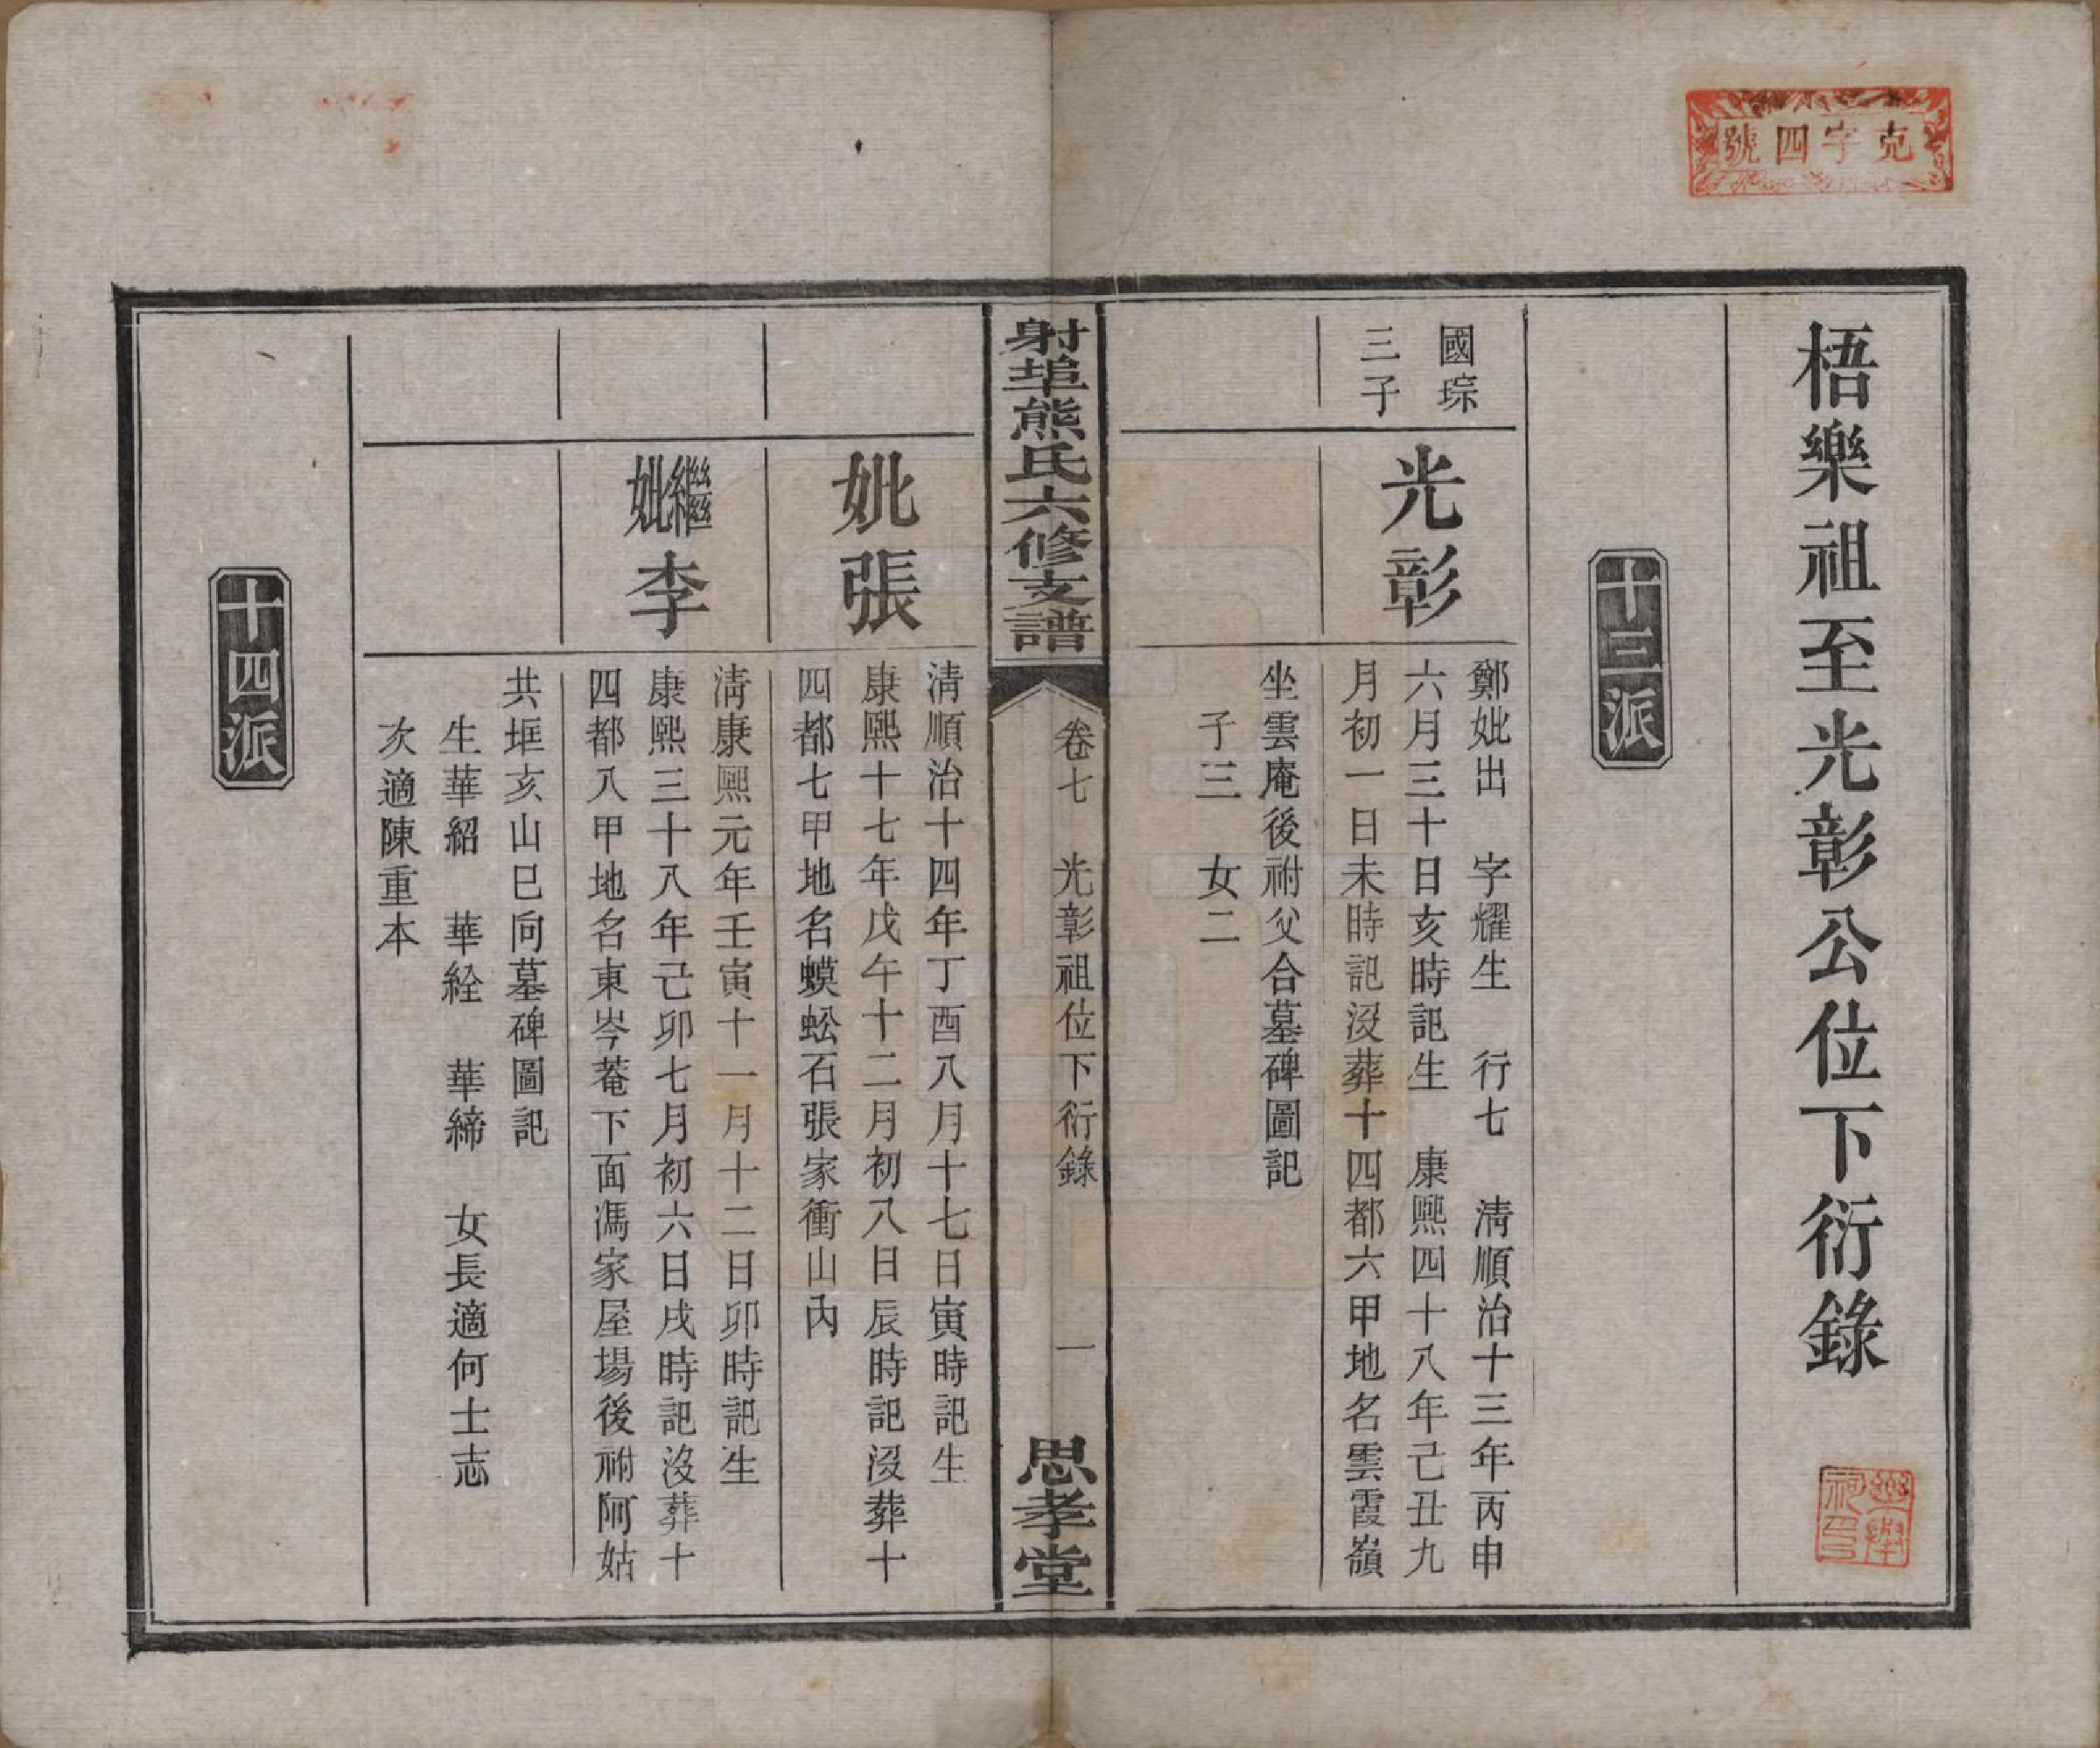 克字四號
梧樂祖至光彰公位下衍錄
十三派
國琮
三子
光彰
鄭妣出　字耀生　行七　清順治十三年丙申
六月三十日亥時記生　康熙四十八年己丑九
月初一日未時記沒葬十四都六甲地名雲霞嶺
坐雲庵後祔父合墓碑圖記
子三　女二
射埠熊氏六修支譜
卷七　光彰祖位下衍錄　一
思孝堂
妣張
清順治十四年丁酉八月十七日寅時記生
康熙十七年戊午十二月初八日辰時記沒葬十
四都七甲地名蟆蚣石張家衝山內
繼妣李
清康熙元年壬寅十一月十二日卯時記生
康熙三十八年己卯七月初六日戌時記沒葬十
四都八甲地名東岑菴下面馮家屋場後祔阿姑
共堩亥山巳向墓碑圖記
生華紹　華絟　華締　女長適何士志
次適陳重本
十四派